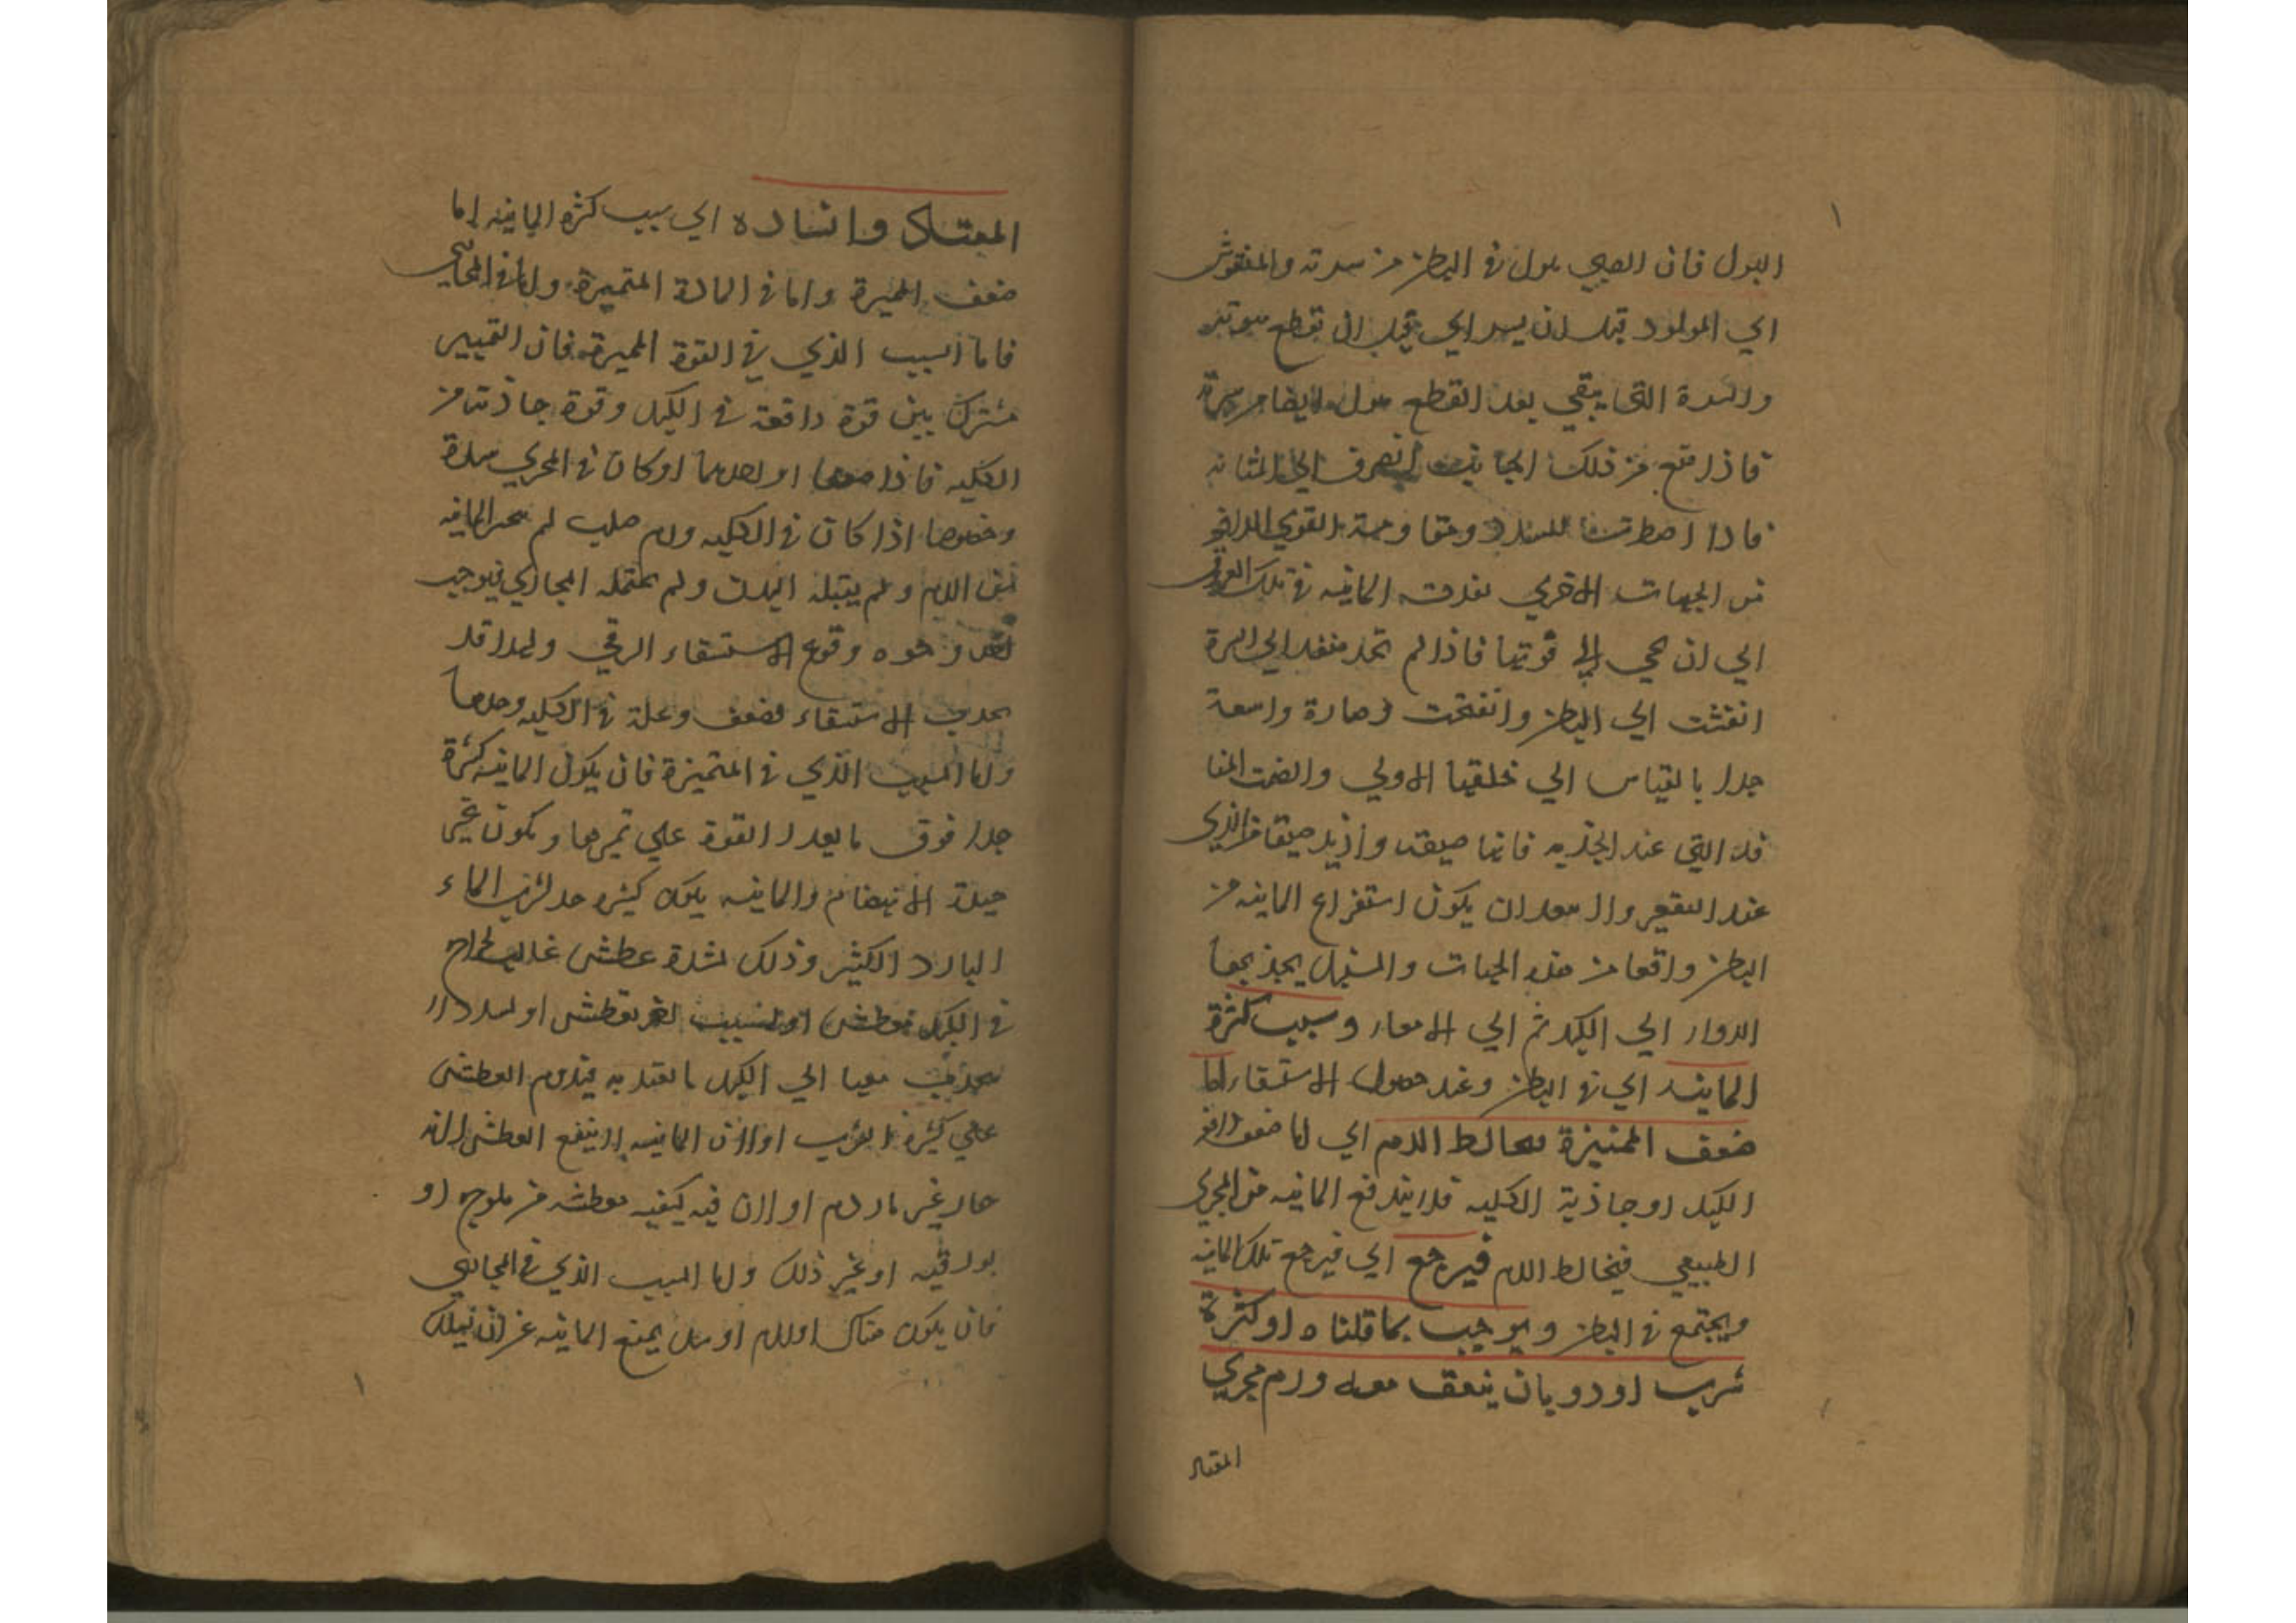 البول فان الصبي يبول في البطن من سرته والمنفوش
اي المولود قبل ان يسر اي قبل ان تقطع سرته
والسرة التي تبقى بعد القطع يبول ايضا من سرته
فاذا امتنع من ذلك الجانب انصرف الي المثانه
فاذا اضطرت السدد ومقاومة القوي الدافعه
من الجهات الاخري نفذت المائيه في تلك العروق
الي ان تجي الي فوتها فاذا لم تجد منفذا الي السرة
انفتقت الي البطن وانفتحت وصارة واسعة
جدا بالقياس الي خلقتها الاولي وانضمت المنا
فذ التي عند الحدبه فانها ضيقه وازيد ضيقا من الذي
عند التقعير ولا يبعد ان يكون استفراغ المائيه من
البطن واقعا من هذه الجهات والمسهل يجذبها
الدواء الي الكبد ثم الي الامعاء وسبب كثرة
المائيه اي في البطن وعند حصول الاستسقاء اما
ضعف المميزة مخالط الدم اي اما ضعف دافعه
الكبد او جاذبة الكليه فلا يندفع المائيه من المجري
الطبيعي فيخالط الدم فيرجع اي فيرجع تلك المائيه
ويجتمع في البطن ويوجب ما قلناه او كثرة
شرب او ذوبان يضعف معه ورم مجري
المعتاد
المعتاد وانسداده اي سبب كثرة المائيه اما
ضعف المميزة واما في المادة المتميزة واما في المجاري
فاما السبب الذي في القوة المميزة فان التمييز
مشترك بين قوة دافعة في الكبد وقوة جاذبة من
الكليه فاذا ضعفتا او احدهما او كان في المجري سدة
وخصوصا اذا كان في الكليه ورم صلب لم يتميز المائيه
من الدم ولم يقبله البدن ولم يحتمله المجاري فيوجب
احد وجوه وقوع الاستسقاء الزقي ولهذا قد
يحدث الاستسقاء لضعف وعلة في الكليه وحدها
واما السبب الذي في المتميزة فان يكون المائيه كثيرة
جدا فوق ما يقدر القوة علي تميزها ويكون غير
جيدة الانهضام والمائيه يكون كثيره جدا لشرب الماء
البارد الكثير وذلك لشدة عطش غالب لمزاج
في الكبد معطش او لسبب اخر معطش او لسدد لا
ينجذب معها الي الكبد ما يعتد به فيدوم العطش
علي كثرة الشرب او لان المائيه لا ينفع العطش لانه
حار غير بارد او لان فيه كيفيه معطشه من ملوحه او
بورقيه او غير ذلك واما السبب الذي في المجاري
فان يكون هناك اورام او سدد يمنع المائيه عن ان تسلك